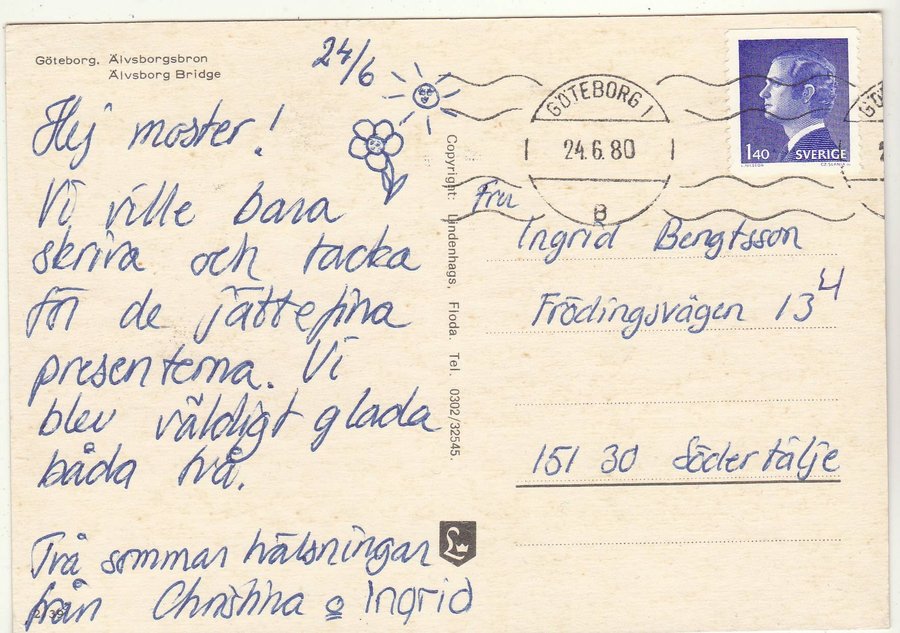 Göteborg, Älvsborgsbron
Älvsborg Bridge
24/6
Hej moster!
Vi ville bara
skriva och tacka
för de jättefina
presenterna. Vi
blev väldigt glada
båda två.
Två sommar hälsningar
från Christina o Ingrid
Copyright: Lindenhags, Floda. Tel. 0302/32545.
L
GÖTEBORG 1
24.6.80
B
GÖ
2
1.40 SVERIGE
CZ.SLANIA
Fru
Ingrid Bengtsson
Frödingsvägen 13 4
151 30 Södertälje